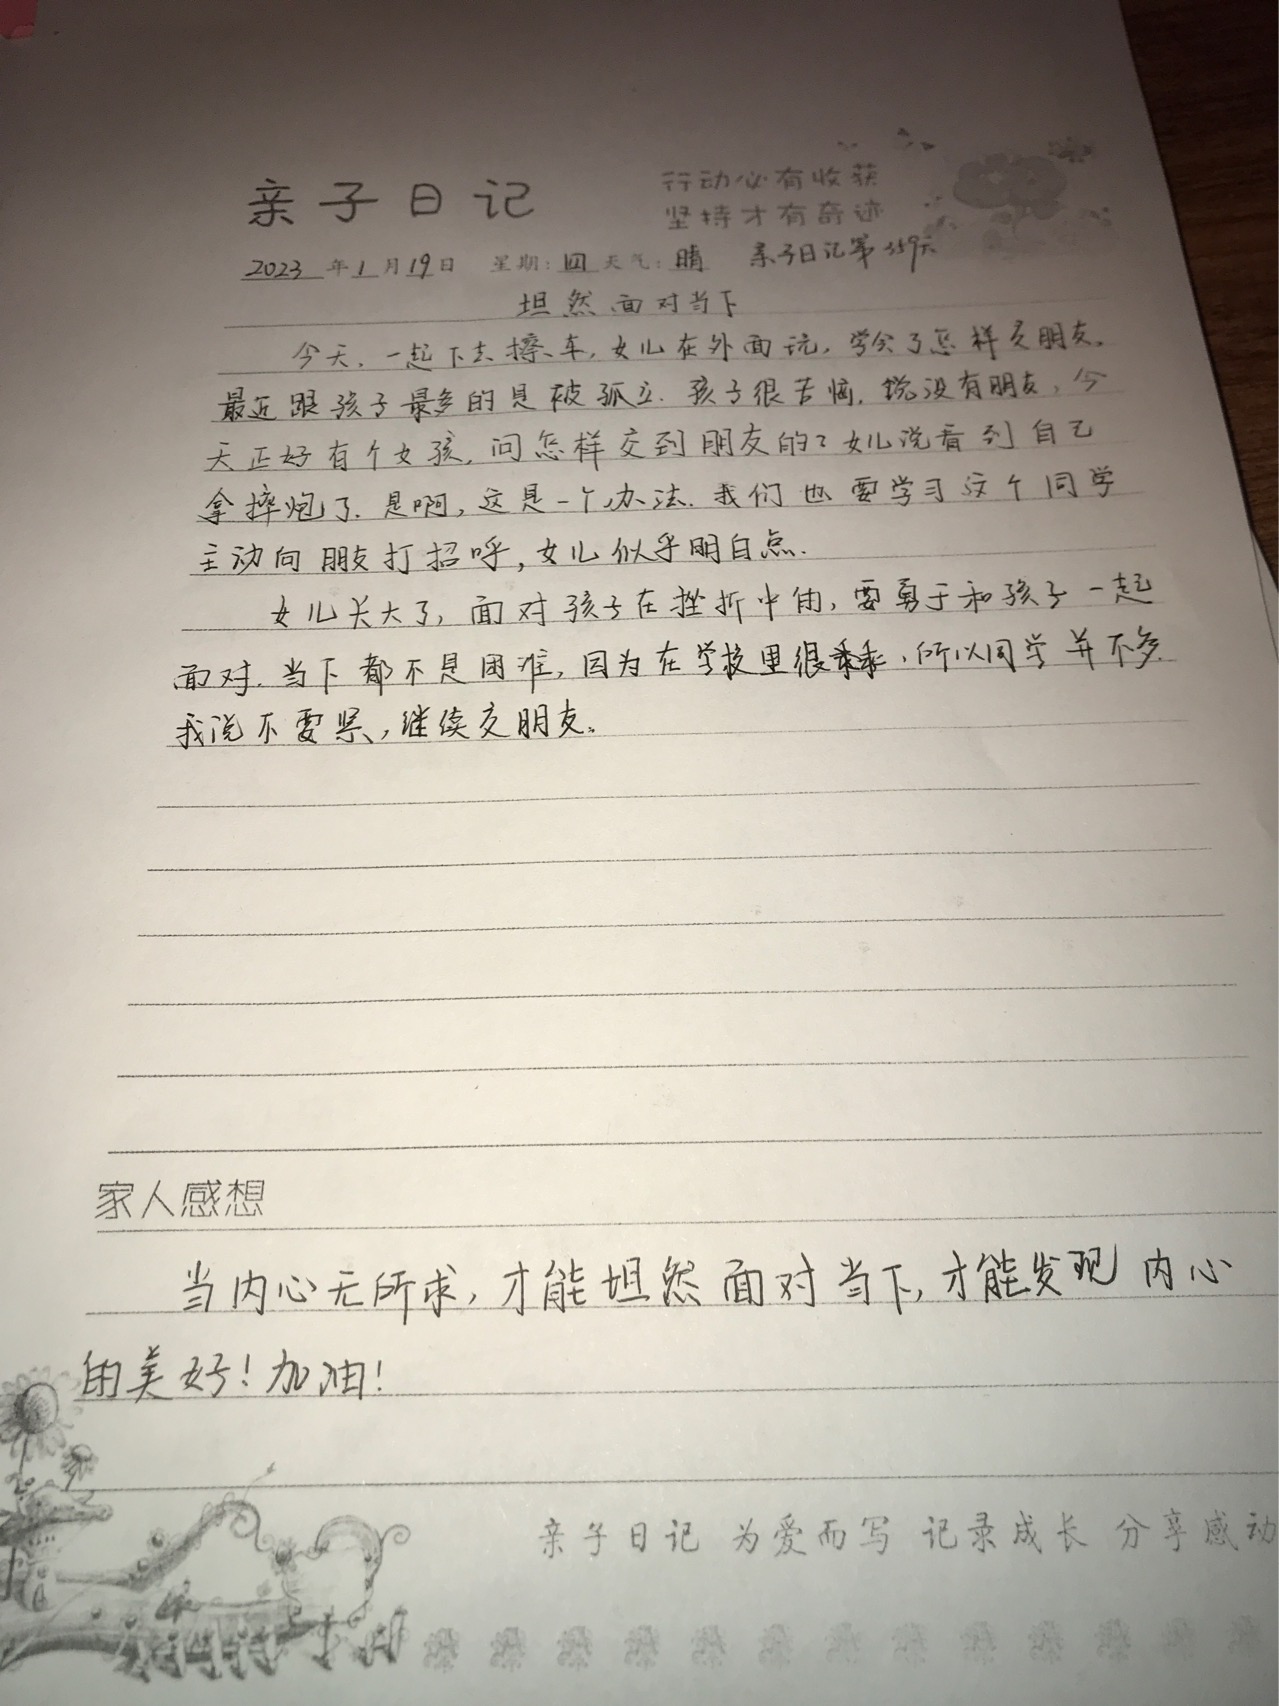 亲子日记
行动必有收获
坚持才有奇迹
2023年1月19日 星期:四 天气:晴 亲子日记第359天
坦然面对当下
今天,一起下去擦车,女儿在外面玩,学会了怎样交朋友。
最近跟孩子最多的是被孤立.孩子很苦恼,说没有朋友,今
天正好有个女孩,问怎样交到朋友的?女儿说看到自己
拿摔炮了.是啊,这是一个办法.我们也要学习这个同学
主动向朋友打招呼,女儿似乎明白点.
女儿长大了,面对孩子在挫折中的,要勇于和孩子一起
面对.当下都不是困难,因为在学校里很乖,所以同学并不多
我说不要紧,继续交朋友。
家人感想
当内心无所求,才能坦然面对当下,才能发现内心
的美好!加油!
亲子日记 为爱而写 记录成长 分享感动